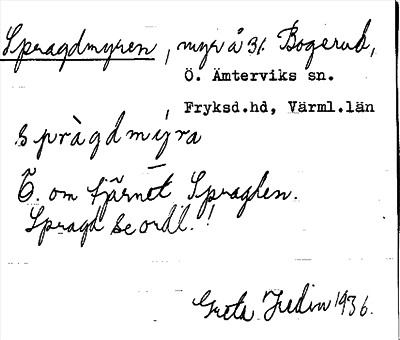 Spragdmyren, myr å 31 Bogerud,
Ö. Ämterviks sn.
Fryksd.hd, Värml.län
spràgdmýra
Ö. om tjärnet Spragden.
Spragd se ordl.!
Greta Hedin 1936.